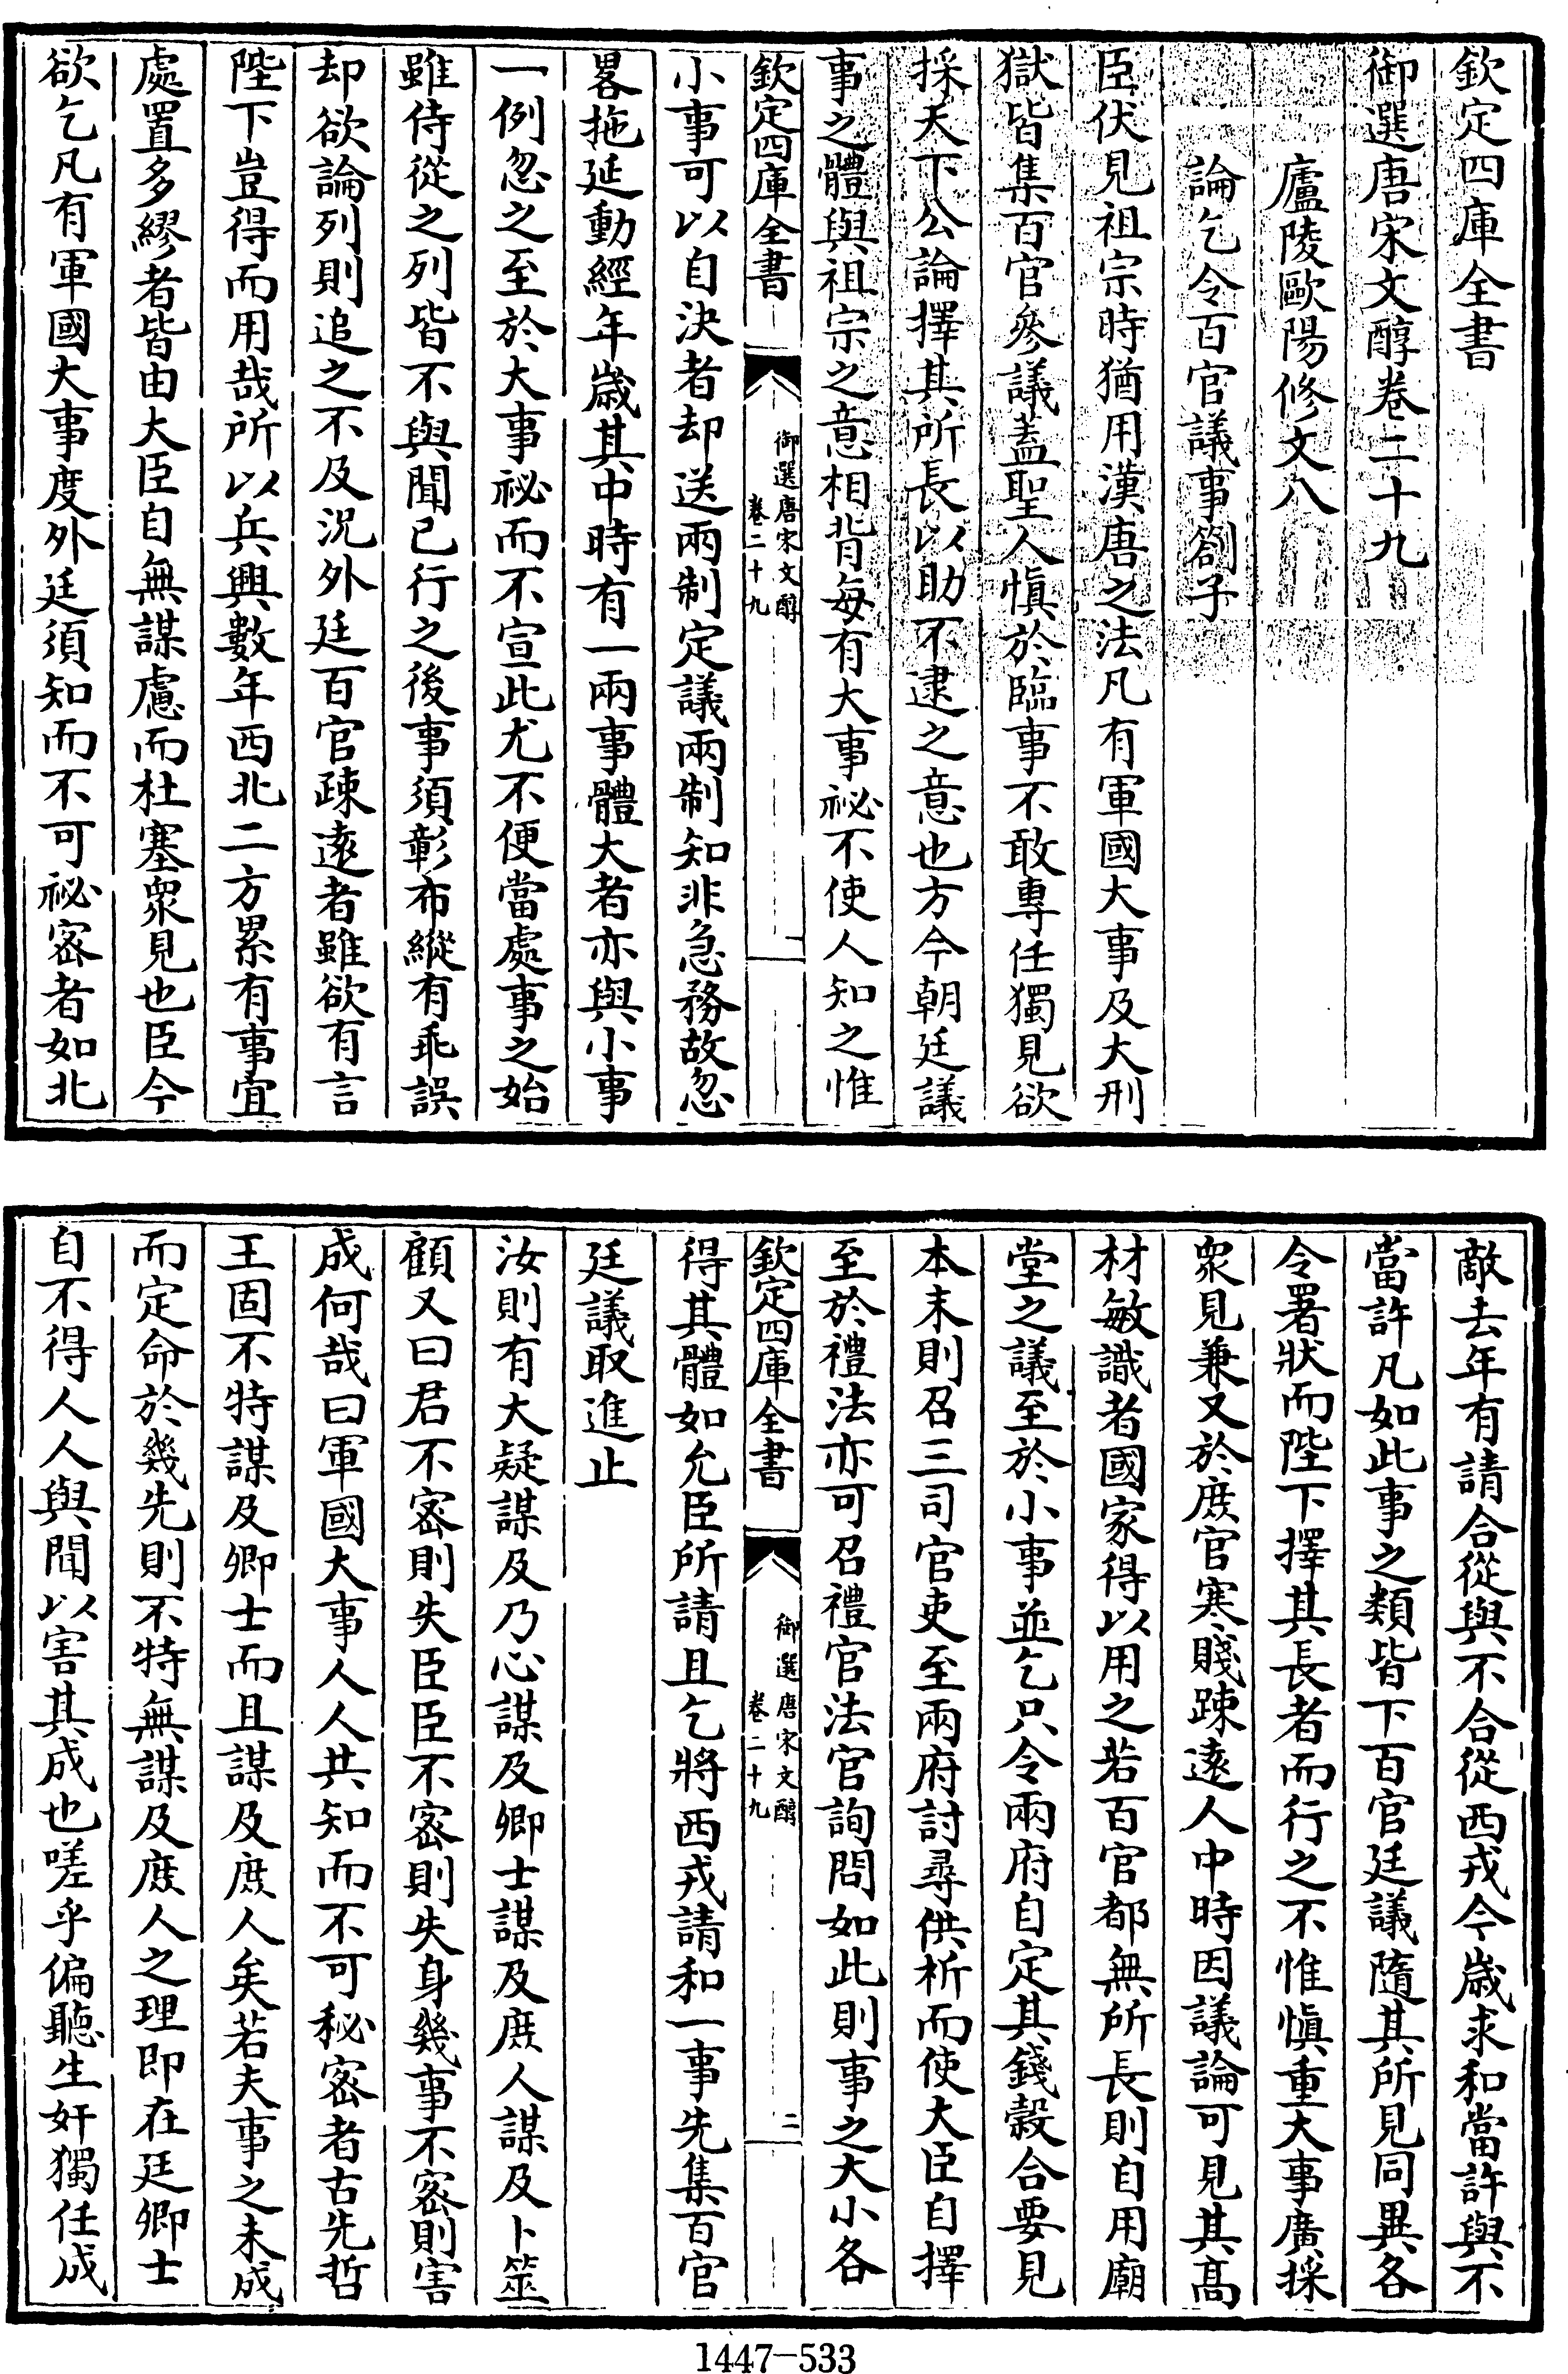 欽定四庫全書
御選唐宋文醇卷二十九
廬陵歐陽修文八
論乞令百官議事劄子
臣伏見祖宗時猶用漢唐之法凡有軍國大事及大刑
獄皆集百官參議蓋聖人慎於臨事不敢專任獨見欲
採天下公論擇其所長以助不逮之意也方今朝廷議
事之體與祖宗之意相背每有大事祕不使人知之惟
欽定四庫全書
御選唐宋文醇
卷二十九
一
小事可以自決者却送兩制定議兩制知非急務故忽
畧拖延動經年歲其中時有一兩事體大者亦與小事
一例忽之至於大事祕而不宣此尤不便當處事之始
雖侍從之列皆不與聞已行之後事須彰布縱有乖誤
却欲論列則追之不及況外廷百官疎遠者雖欲有言
陛下豈得而用哉所以兵興數年西北二方累有事宜
處置多繆者皆由大臣自無謀慮而杜塞衆見也臣今
欲乞凡有軍國大事度外廷須知而不可祕密者如北
敵去年有請合從與不合從西戎今歲求和當許與不
當許凡如此事之類皆下百官廷議隨其所見同異各
令署狀而陛下擇其長者而行之不惟慎重大事廣採
衆見兼又於庶官寒賤疎遠人中時因議論可見其高
材敏識者國家得以用之若百官都無所長則自用廟
堂之議至於小事並乞只令兩府自定其錢穀合要見
本末則召三司官吏至兩府討尋供析而使大臣自擇
至於禮法亦可召禮官法官詢問如此則事之大小各
欽定四庫全書
御選唐宋文醇
卷二十九
二
得其體如允臣所請且乞將西戎請和一事先集百官
廷議取進止
汝則有大疑謀及乃心謀及卿士謀及庶人謀及卜筮
顧又曰君不密則失臣臣不密則失身幾事不密則害
成何哉曰軍國大事人人共知而不可秘密者古先哲
王固不特謀及卿士而且謀及庶人矣若夫事之未成
而定命於幾先則不特無謀及庶人之理即在廷卿士
自不得人人與聞以害其成也嗟乎偏聽生奸獨任成
1447-533